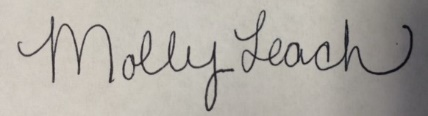 Molly Leach